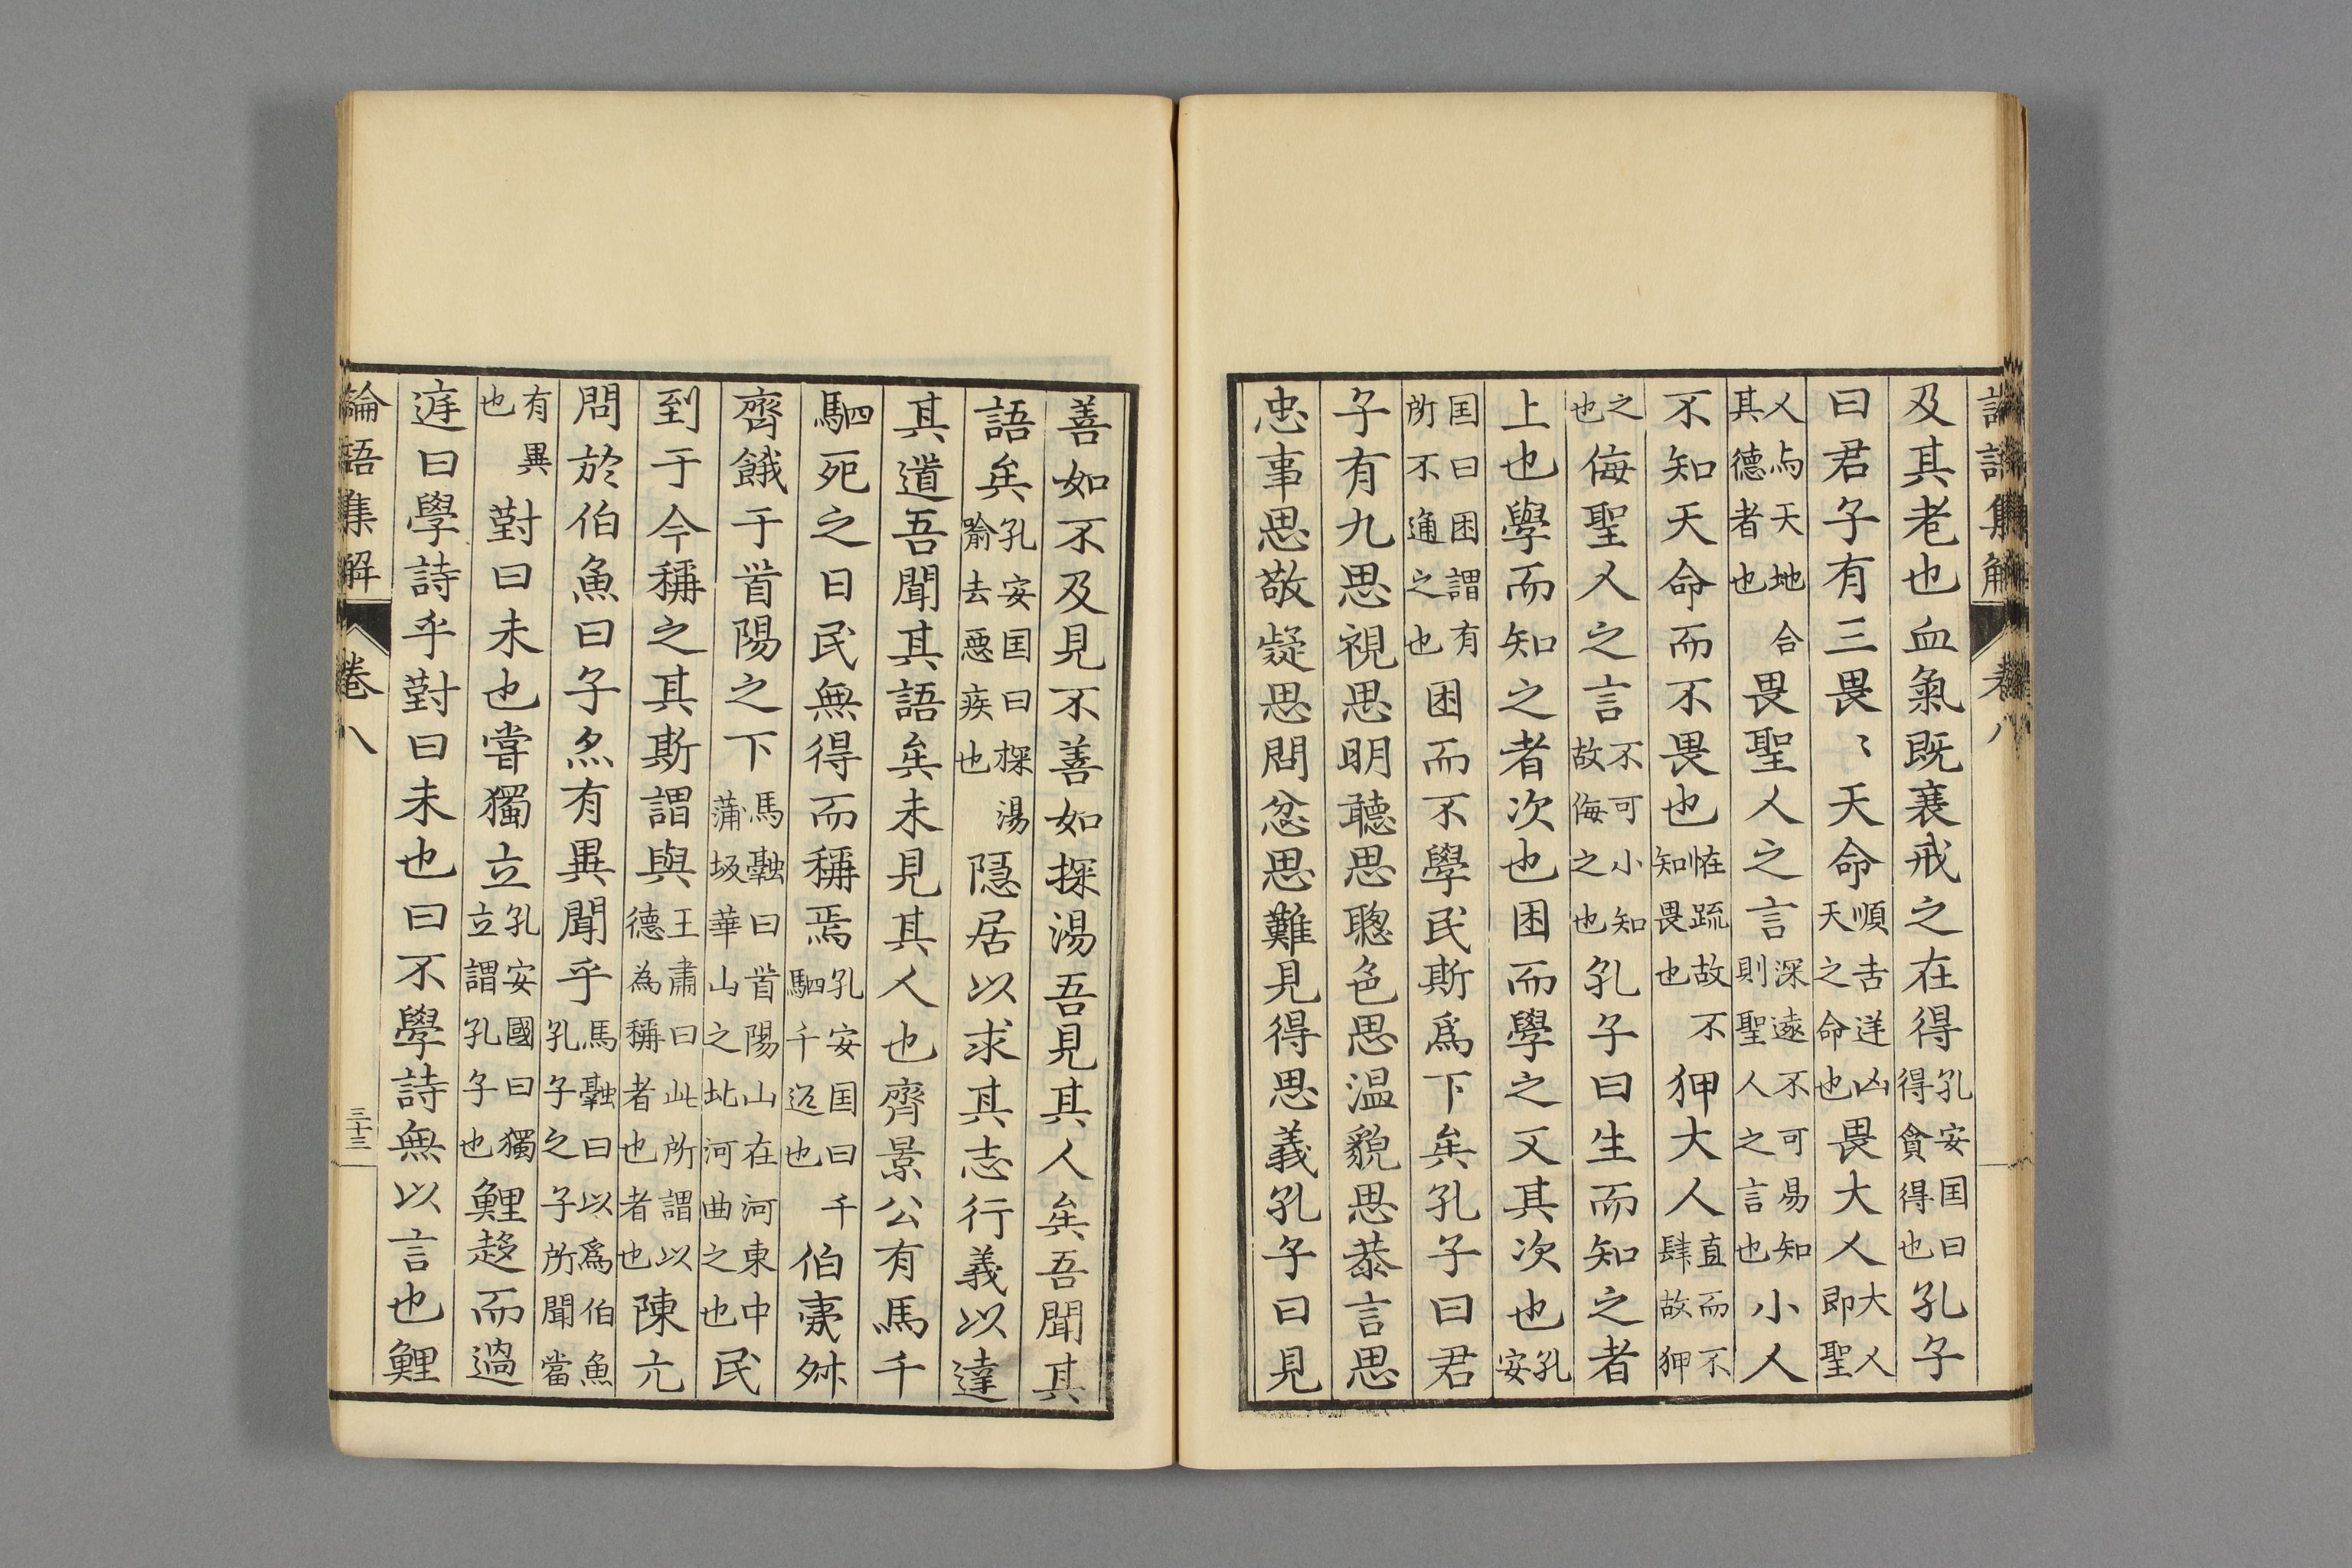 論語集解 卷八
及其老也血氣既衰戒之在得孔安囯曰得貪得也孔子
曰君子有三畏〻天命順吉逆凶天之命也畏大人大人即聖
人与天地合其德者也畏聖人之言深遠不可易知則聖人之言也小人
不知天命而不畏也恠疏故不知畏也狎大人直而不肆故狎
之也侮聖人之言不可小知故侮之也孔子曰生而知之者
上也學而知之者次也困而學之又其次也孔安
囯曰困謂有所不通之也困而不學民斯爲下矣孔子曰君
子有九思視思明聽思聰色思温貌思恭言思
忠事思敬疑思問忿思難見得思義孔子曰見
善如不及見不善如探湯吾見其人矣吾聞其
語矣孔安囯曰探湯喻去惡疾也隱居以求其志行義以達
其道吾聞其語矣未見其人也齊景公有馬千
駟死之日民無得而稱焉孔安囯曰千駟千匹也伯夷叔
齊餓于首陽之下馬融曰首陽山在河東中蒲坂華山之北河曲之也民
到于今稱之其斯謂與王肅曰此所謂以德為稱者也者也陳亢
問於伯魚曰子亦有異聞乎馬融曰以爲伯魚孔子之子所聞當
有異也對曰未也嘗獨立孔安國曰獨立謂孔子也鯉趍而過
庭曰學詩乎對曰未也曰不學詩無以言也鯉
論語集解 卷八 三十三